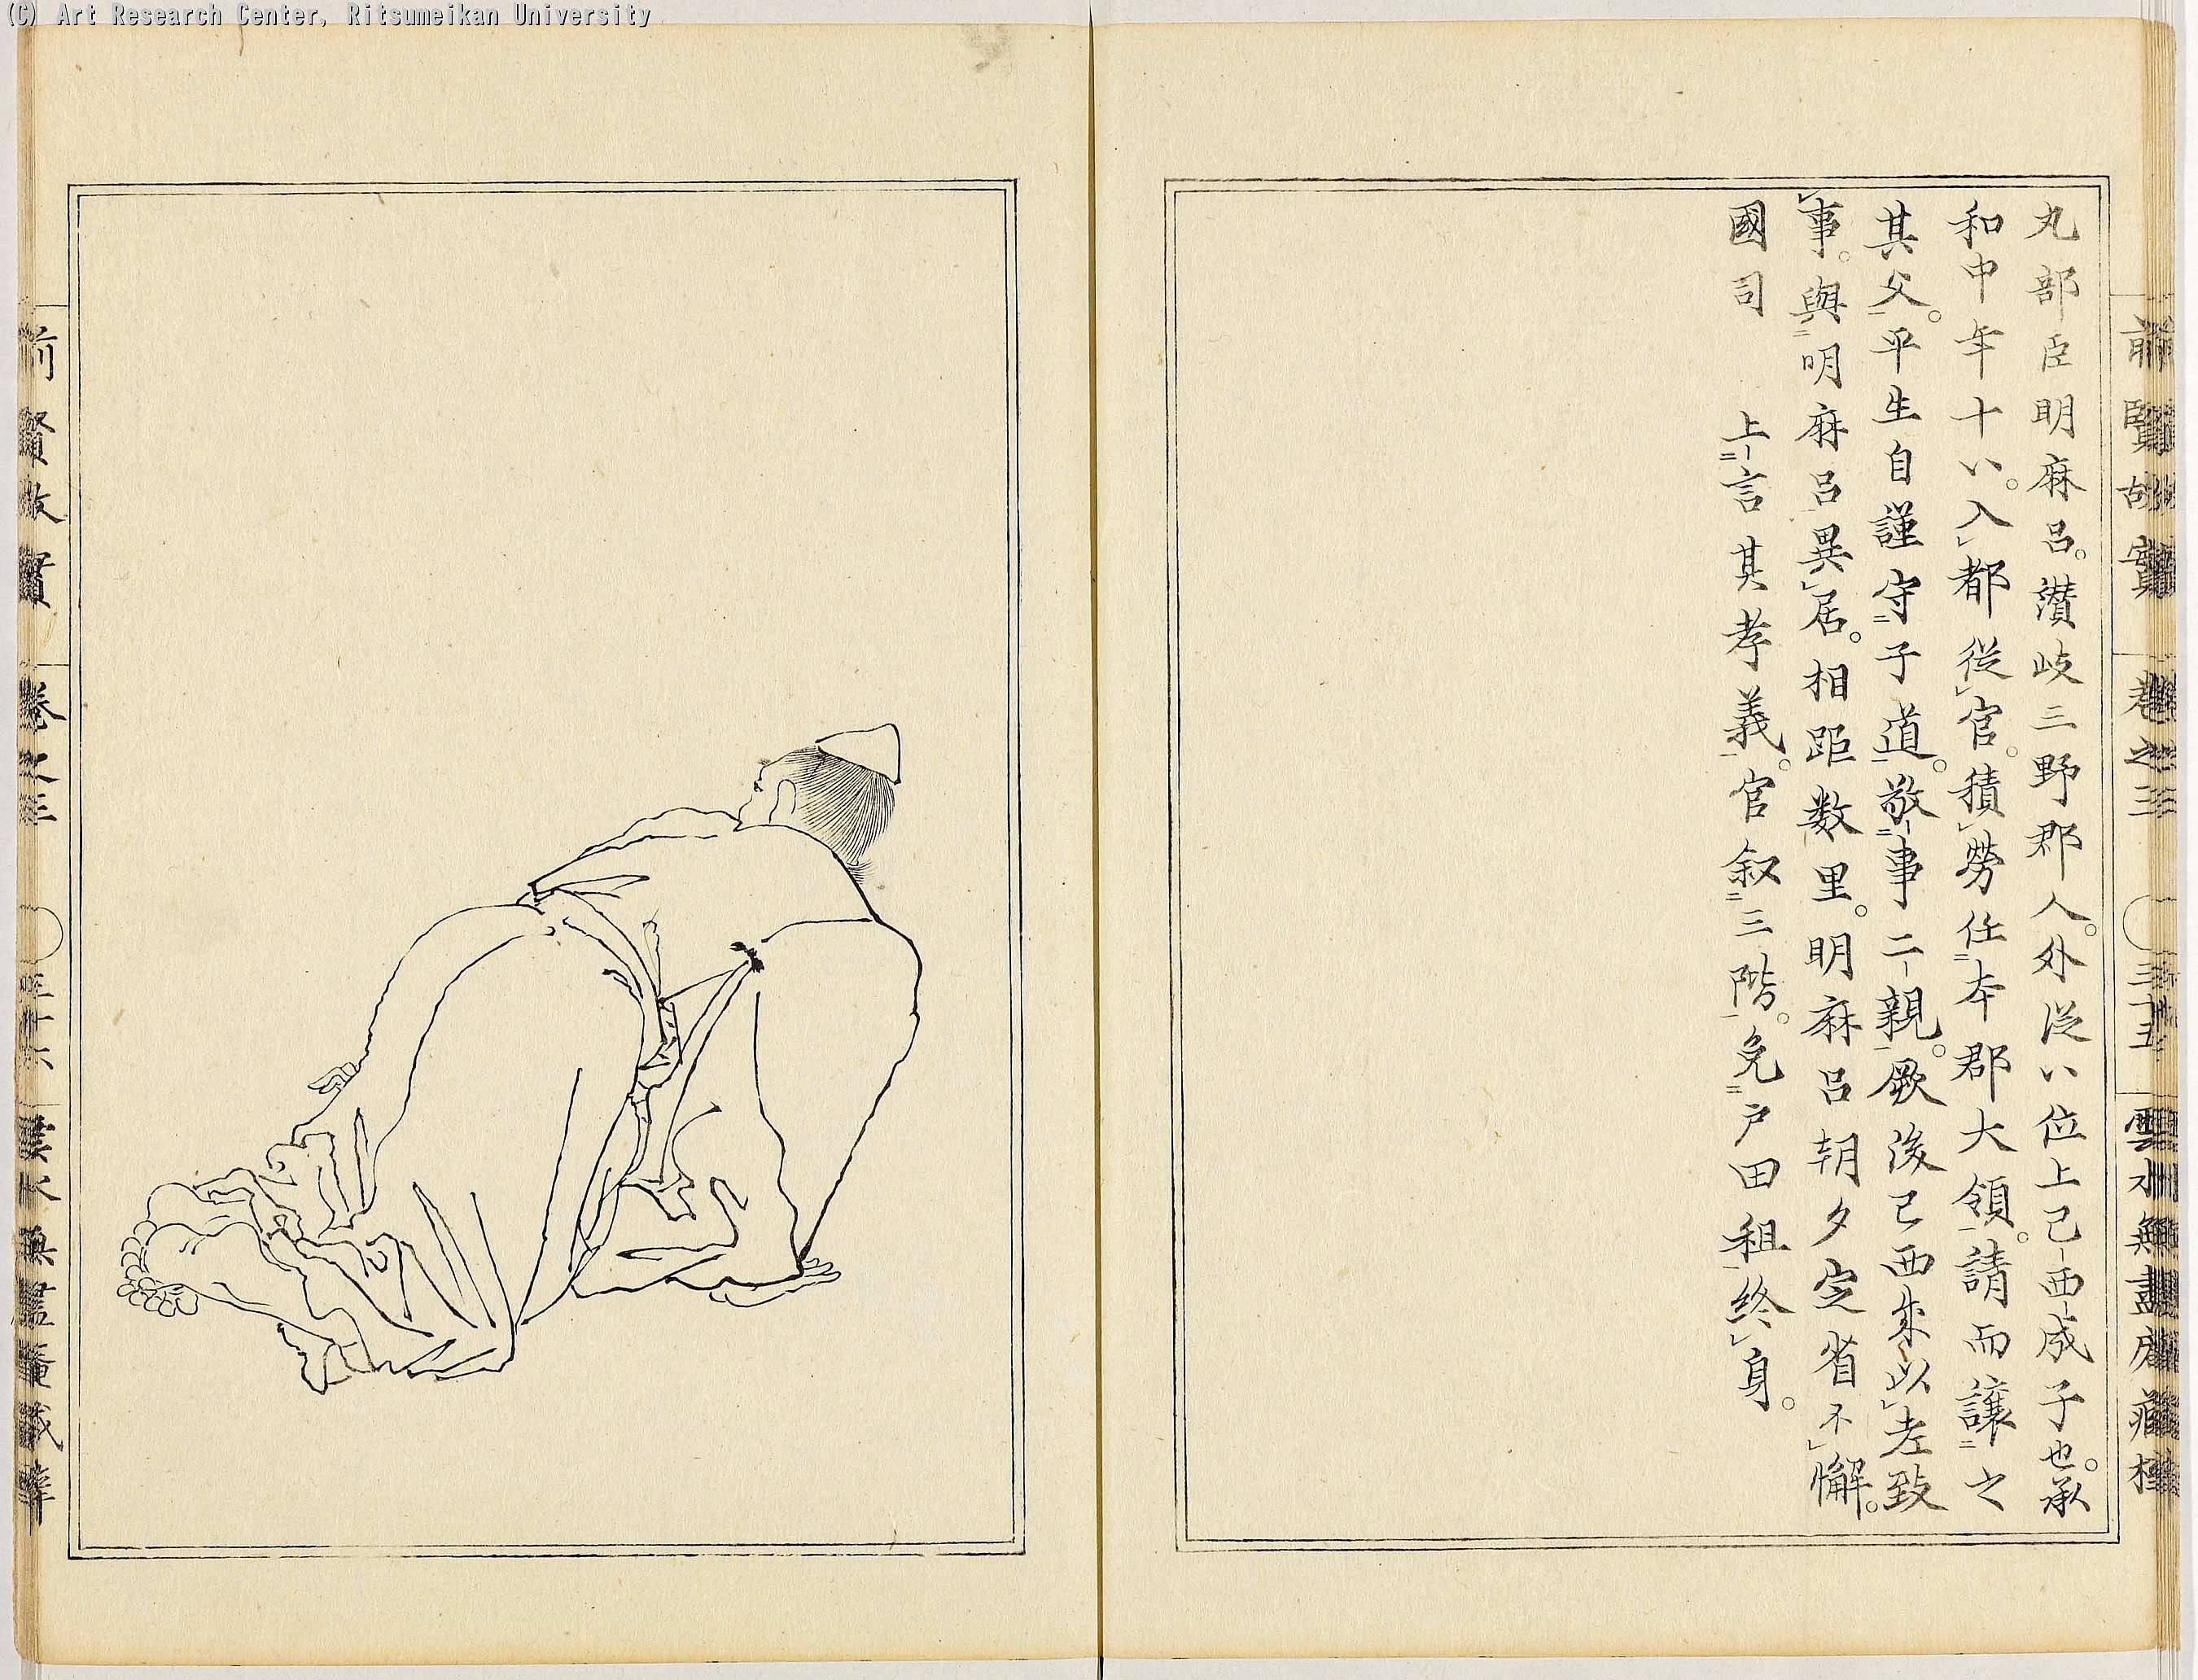 (C) Art Research Center, Ritsumeikan University
前賢故實 卷之三 三十五 雲水無盡庵藏梓
丸部臣明麻呂。讃岐三野郡人。外從八位上己西成子也。承
和中年十八。入都從官。積勞任本郡大領。請而讓之
其父。平生自謹守子道。敬事二親。厥後己西成以老致
事。與明麻呂異居。相距数里。明麻呂朝夕定省不懈。
國司 上言其孝義。官叙三階。免戸田租終身。
前賢故實 卷之三 三十六 雲水無盡庵藏梓